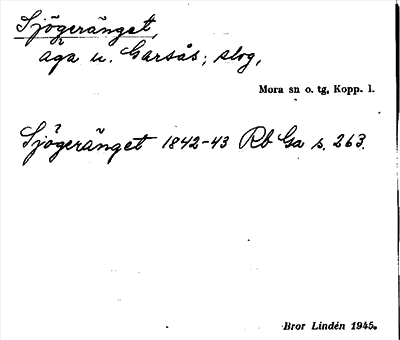 Sjögeränget,
äga u. Garsås; slog,
Mora sn o. tg, Kopp. l.
Sjögeränget 1842-43 Rb Ga s. 263.
Bror Lindén 1945.